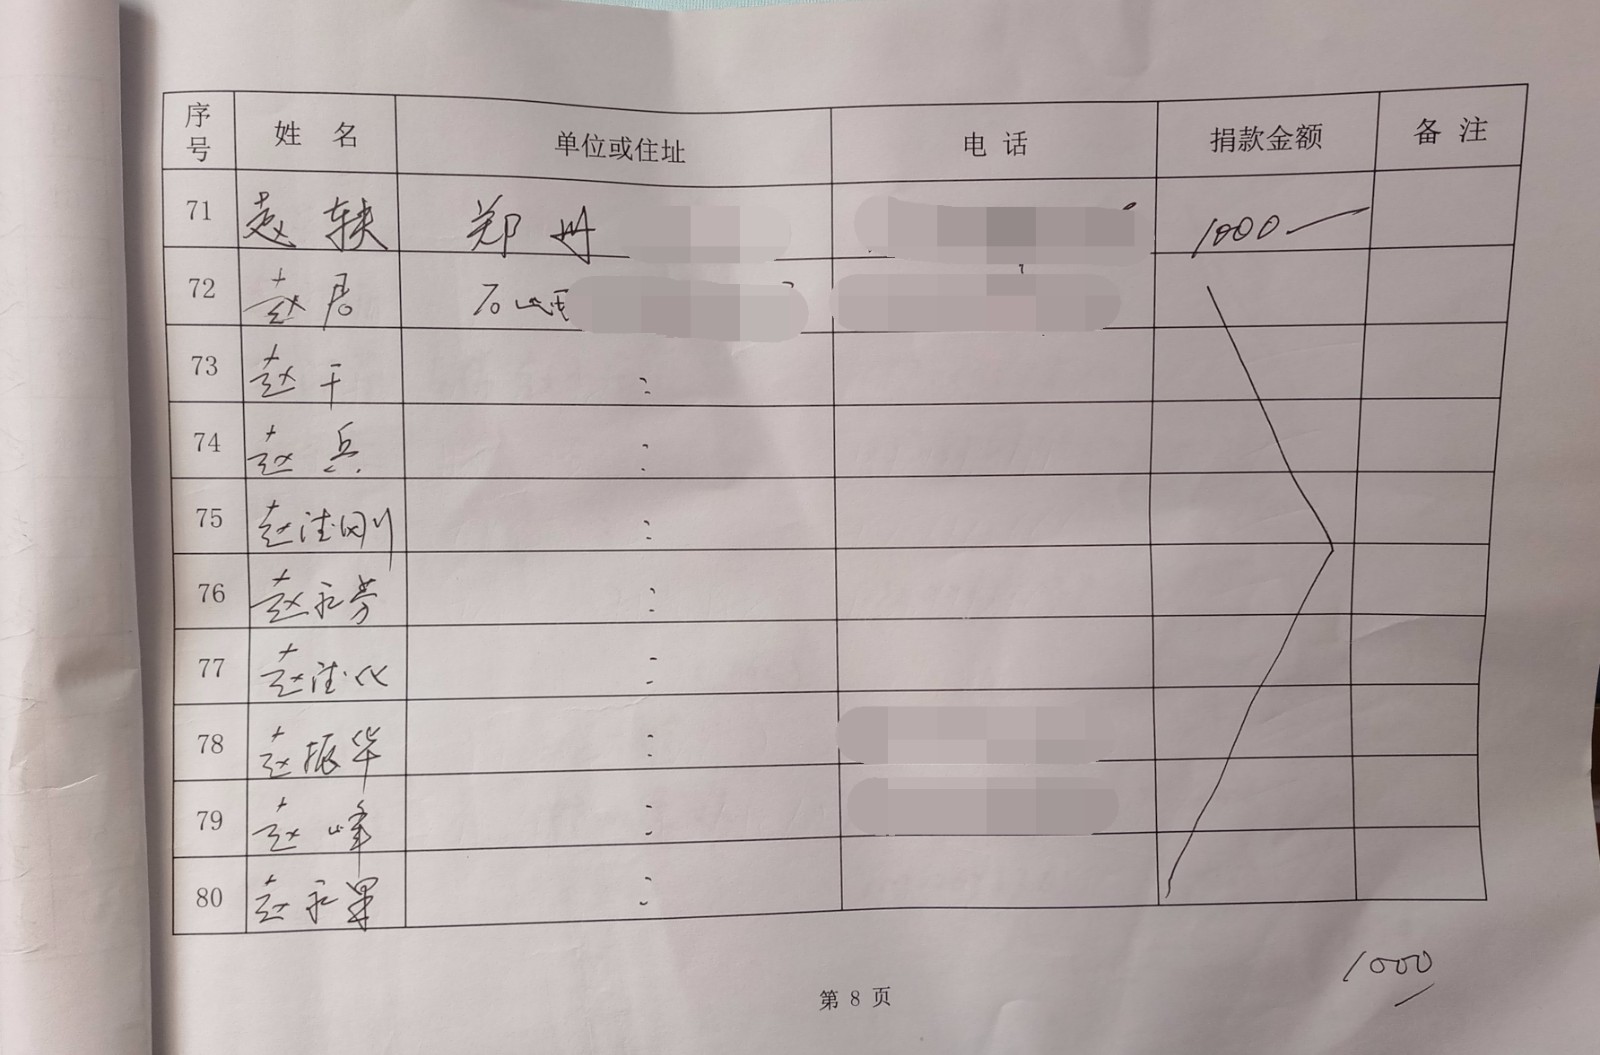 序号 姓 名 单位或住址 电 话 捐款金额 备 注
71 赵 轶 郑州 1000
72 赵 居
73 赵 干 :
74 赵 兵 :
75 赵 刚 :
76 赵永芳 :
77 赵 :
78 赵振华 :
79 赵 峰 :
80 赵永军 :
1000
第 8 页